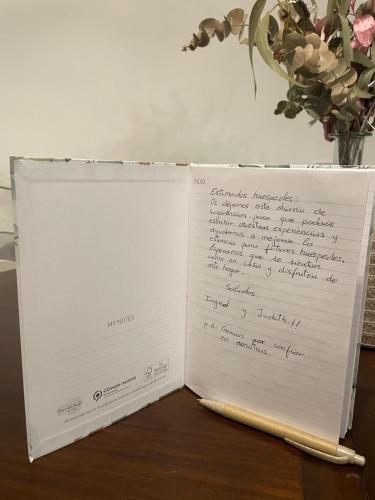 INDEX
Estimados huespedes:
Os dejamos este diario de
sugerencias para que podais
escribir vuestras experiencias y
ayudarnos a mejorar la
estancia para futuros huespedes.
Esperamos que se sientan
como en casa y disfruten de
este hogar...
Saludos.
Ingrid y Judith.!!
p.d: Gracias por confiar
en nosotras..
MY NOTES
Climate neutral
FSC